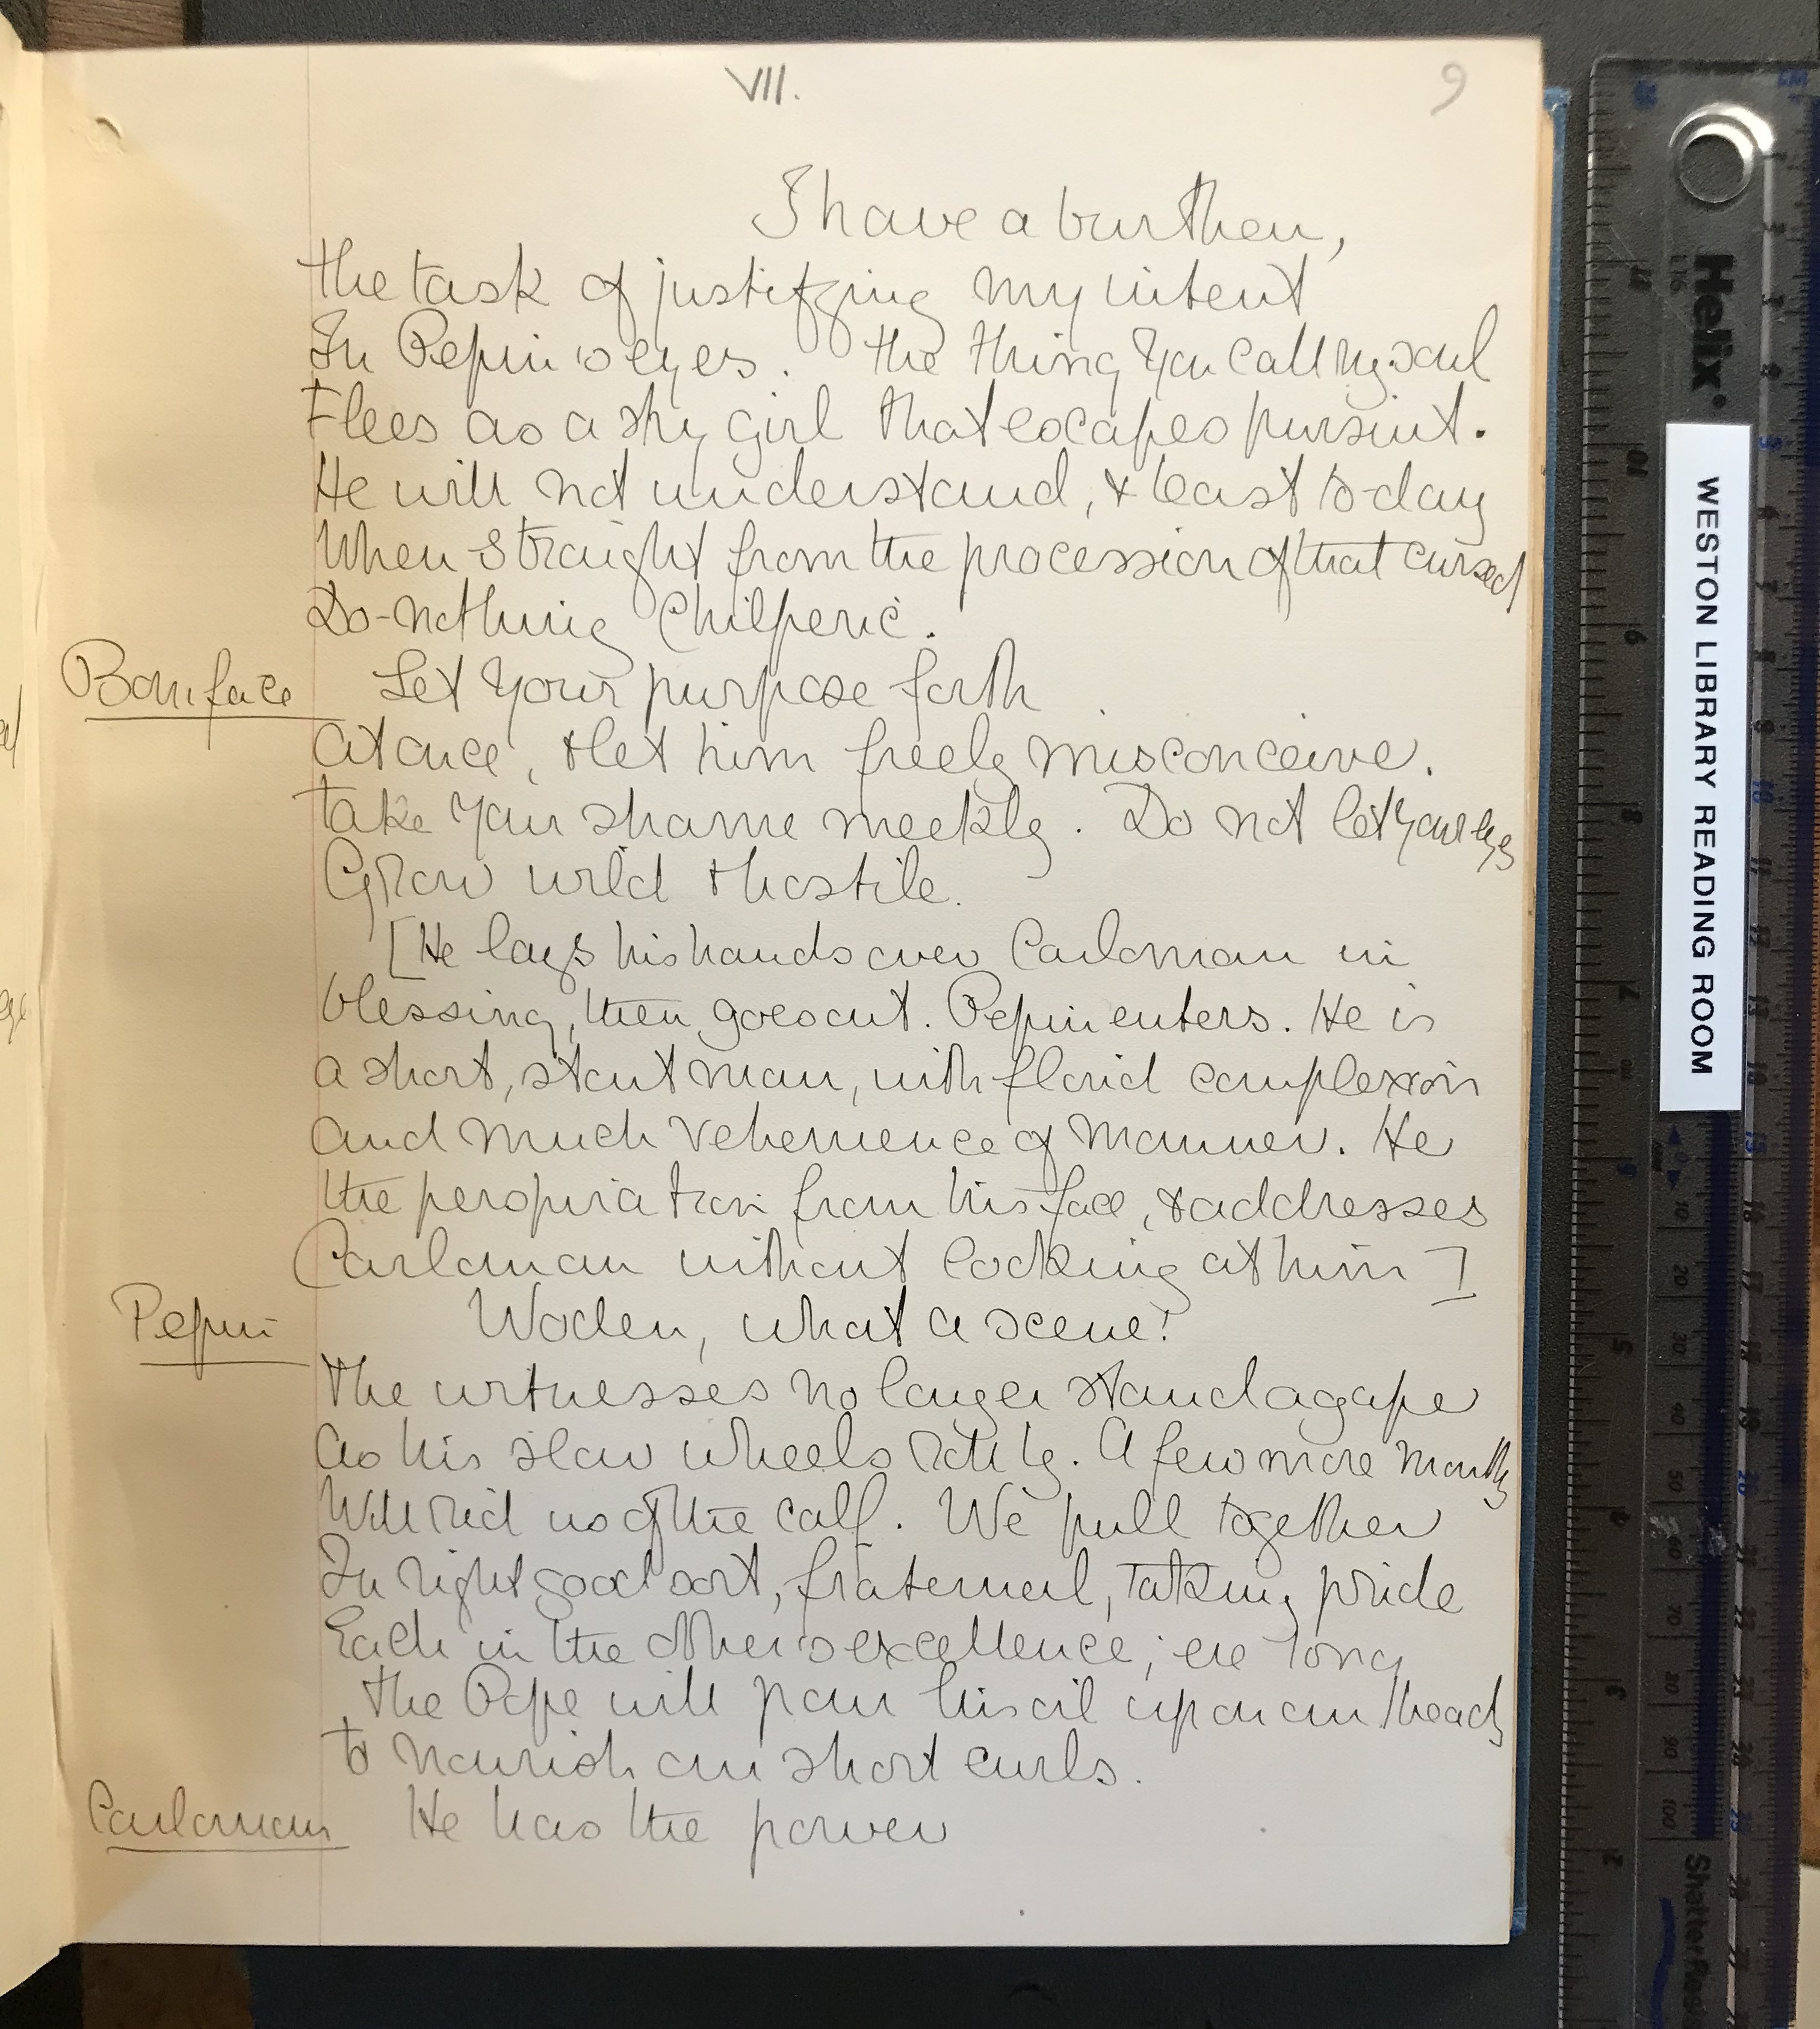 VII.
9
I have a burthen,
The task of justifying my intent
In Pepin's eyes. The thing you call my soul
Flees as a shy girl that escapes pursuit.
He will not understand, & least to-day
When straight from the procession of that cursed
Do-nothing Chilperic.
Boniface Let your purpose forth
At once, & let him freely misconceive.
Take your shame meekly. Do not let your eyes
Grow wild & hostile.
[He lays his hands over Carloman in
blessing, then goes out. Pepin enters. He is
a short, stout man, with florid complexion
and much vehemence of manner. He
the perspiration from his face, & addresses
Carloman without looking at him]
Pepin Woden, what a scene!
The witnesses no longer stand agape
As his slow wheels roll by. A few more months
Will rid us of the calf. We pull together
In right good sort, fraternal, taking pride
Each in the other's excellence; ere long
The Pope will pour his oil upon our heads
To nourish our short curls.
Carloman He has the power
WESTON LIBRARY READING ROOM
Helix
L16
Shatter Resis